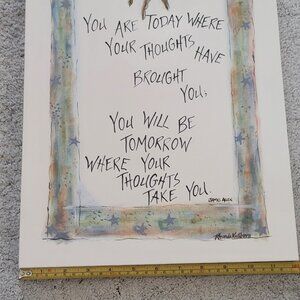 YOU ARE TODAY WHERE
YOUR THOUGHTS HAVE
BROUGHT
YOU;
YOU WILL BE
TOMORROW
WHERE YOUR
THOUGHTS
TAKE YOU.
JAMES ALLEN